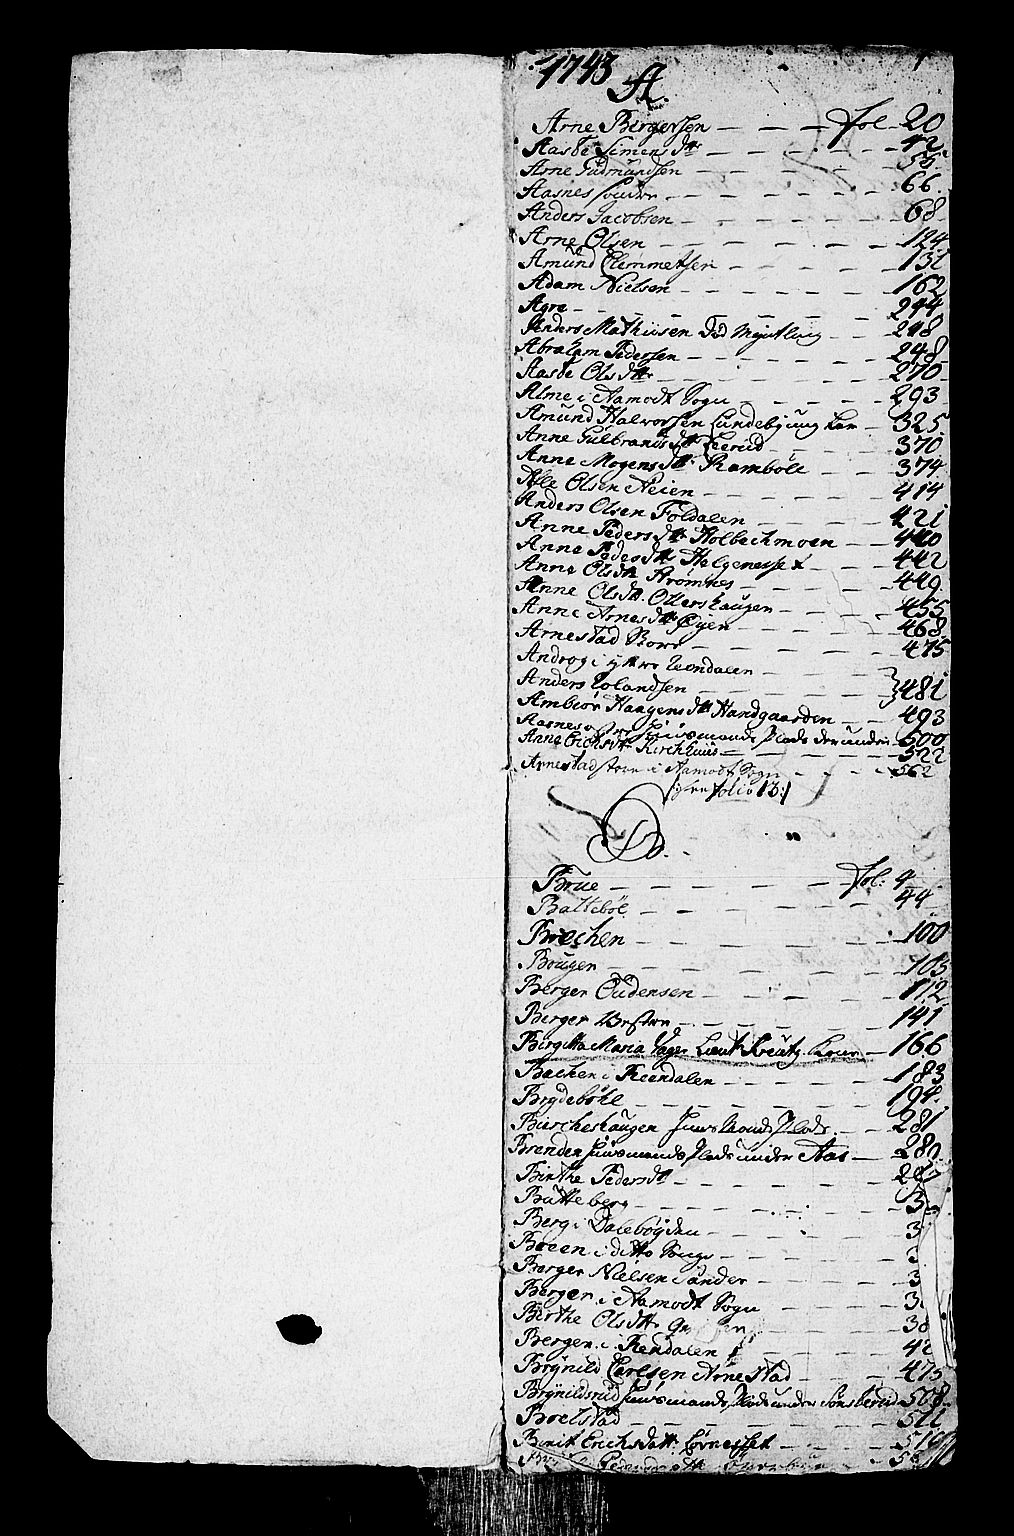 1743
A.
Arne Bergersen — — — fol. 20
Aasta Simens dtr — — — 42
Arne Gudmundsen — — — 55
Aasnes søndre — — — 66
Anders Jacobsen — — — 68
Arne Olsen — — — 124
Amund Clemmetsen — — — 131
Adam Nielsen — — — 162
Agre — — — 244
Anders Mathiesen — — — 248
Abraham Pedersen — — — 248
Aaste Olsdtr — — — 270
Alme i Aamodt Sogn — — 293
Amund Halvorsen Lundebye — 325
Anne Gulbrands dtr — — 370
Anne Mogens dtr Rambøle — 374
Olsen Neien — — — 414
Anders Olsen Foldalen — — 421
Anne Peders dtr Holbechmoen — 440
Anne Peders dtr Helgenesset — 442
Anne Olsdtr Strømnes — — 449
Anne Olsdtr. Ollershaugen — — 455
Anne Arnes dtr Øyen — — 468
Arnestad — — 475
Androg i yttre Rendalen — —
Anders Rolandsen — — 481
Ambiør Haagens dtr Handgaarden — 493
Aasnes Huusmands Plads derunder 500
Anne Erichsdtr Kirchhuus — 522
Arnestad store i Aamodt Sogn — — 562
folio 13
B.
Brue — — — fol: 4
Baltebøl — — — 44
Brochen — — — 100
Bougen — — — 103
Berger Oudensen — — — 112
Berger Vestre — — — 141
Birgitta Maria Leut: — 166
Bachen i Reendalen — — 183
Brydebøhl — — — 194
Bircheshaugen Huusmands Plads — 281
Brenden Huusmands Plads under Aas — 280
Birthe Pedersdtr — — —
Batteberg — — — 3
Berg i — — 3
Boeen i ditto Sogn — — 3
Berger Nielsen Sander — 3
Bergen i Aamodt Sogn — — 3
Birthe Olsdtr — — 38
Bergen i Rendalen — — 42
Brynild Carlsen Arnestad — — 475
Brynildsrud Huusmands Plads under 508
Boelstad — — — 511
Berit Erichsdatt: Tørnesset — —